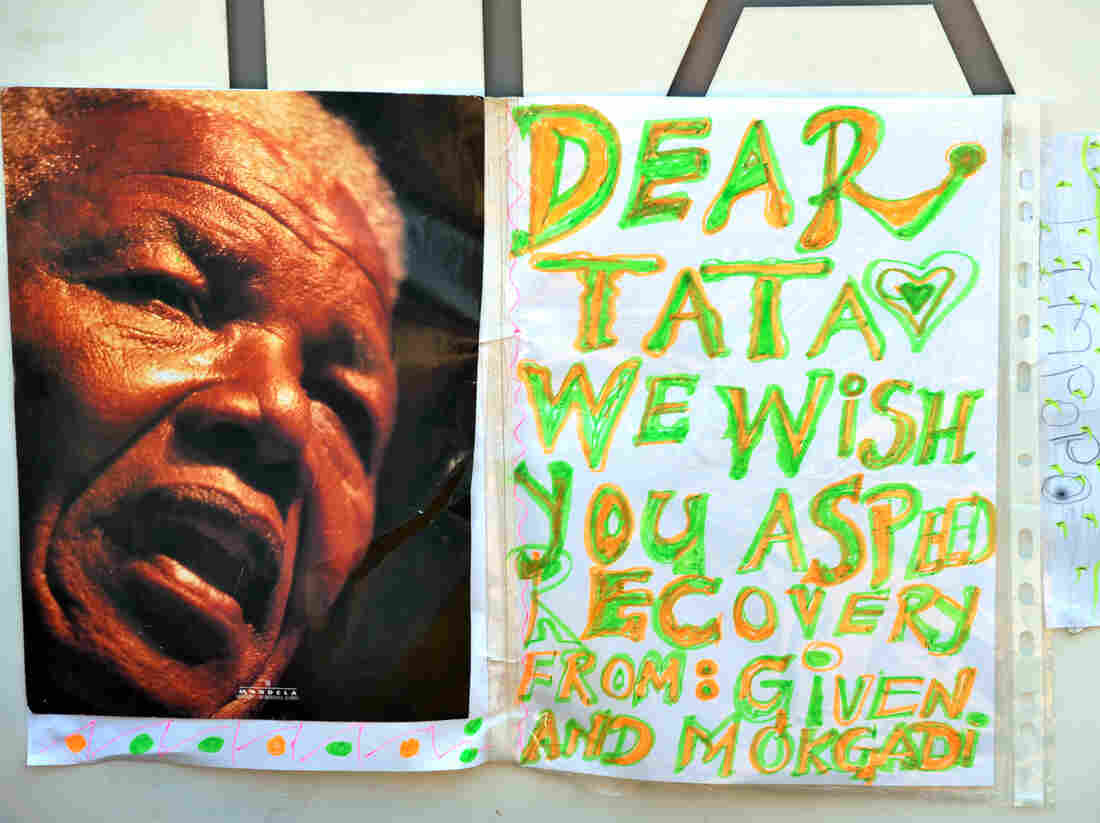 MANDELA
DEAR
TATA
WE WISH
YOU ASPEED
RECOVERY
FROM: GiVEN
AND MOKGADi